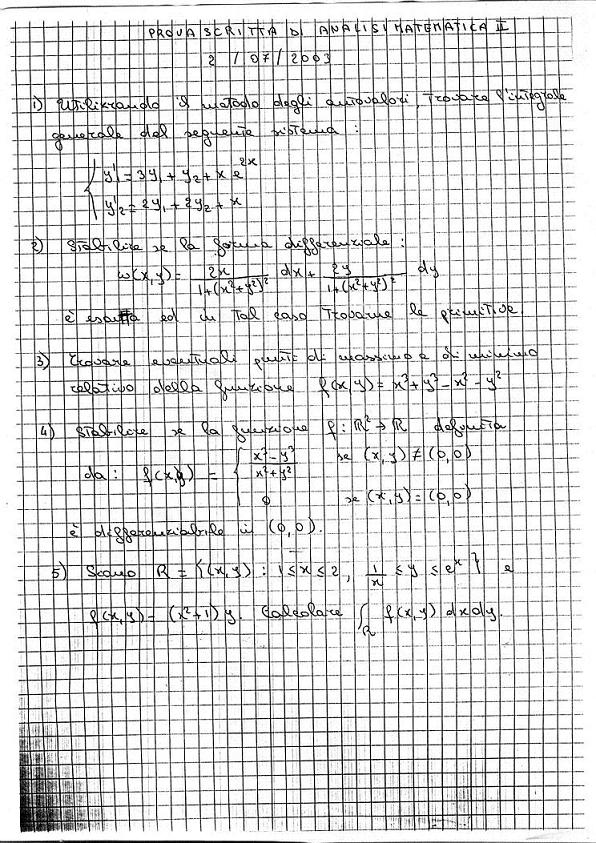 PROVA SCRITTA DI ANALISI MATEMATICA II
2 / 07 / 2003
1) Utilizzando il metodo degli autovalori, trovare l'integrale
generale del seguente sistema :
{ y'₁ = 3y₁ + y₂ + x e^{2x}
y'₂ = 2y₁ + 2y₂ + x
2) Stabilire se la forma differenziale :
ω(x,y) = 2x/(1+(x²+y²)²) dx + 2y/(1+(x²+y²)²) dy
è esatta ed in tal caso trovarne le primitive.
3) Trovare eventuali punti di massimo e di minimo
relativo della funzione f(x,y) = x³+y³-x²-y²
4) Stabilire se la funzione f : ℝ² → ℝ definita
da : f(x,y) = { (x³-y³)/(x²+y²) se (x,y) ≠ (0,0)
0 se (x,y) = (0,0)
è differenziabile in (0,0).
5) Siano R = {(x,y) : 1 ≤ x ≤ 2, 1/x ≤ y ≤ e^x } e
f(x,y) = (x²+1) y. Calcolare ∫_R f(x,y) dxdy.